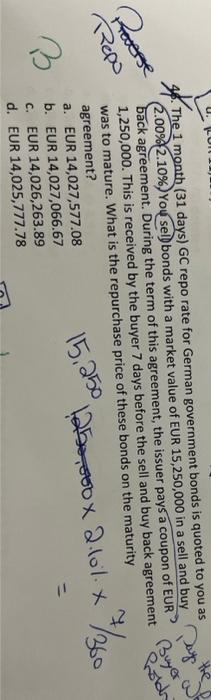 Reverse
Repo
46. The 1 month (31 days) GC repo rate for German government bonds is quoted to you as
2.00%/2.10%. You sell bonds with a market value of EUR 15,250,000 in a sell and buy
back agreement. During the term of this agreement, the issuer pays a coupon of EUR
1,250,000. This is received by the buyer 7 days before the sell and buy back agreement
was to mature. What is the repurchase price of these bonds on the maturity
agreement?
a. EUR 14,027,577.08
b. EUR 14,027,066.67
c. EUR 14,026,263.89
d. EUR 14,025,777.78
B
Pays the
Buyer
15,250
x 2.10% x 7/360
=